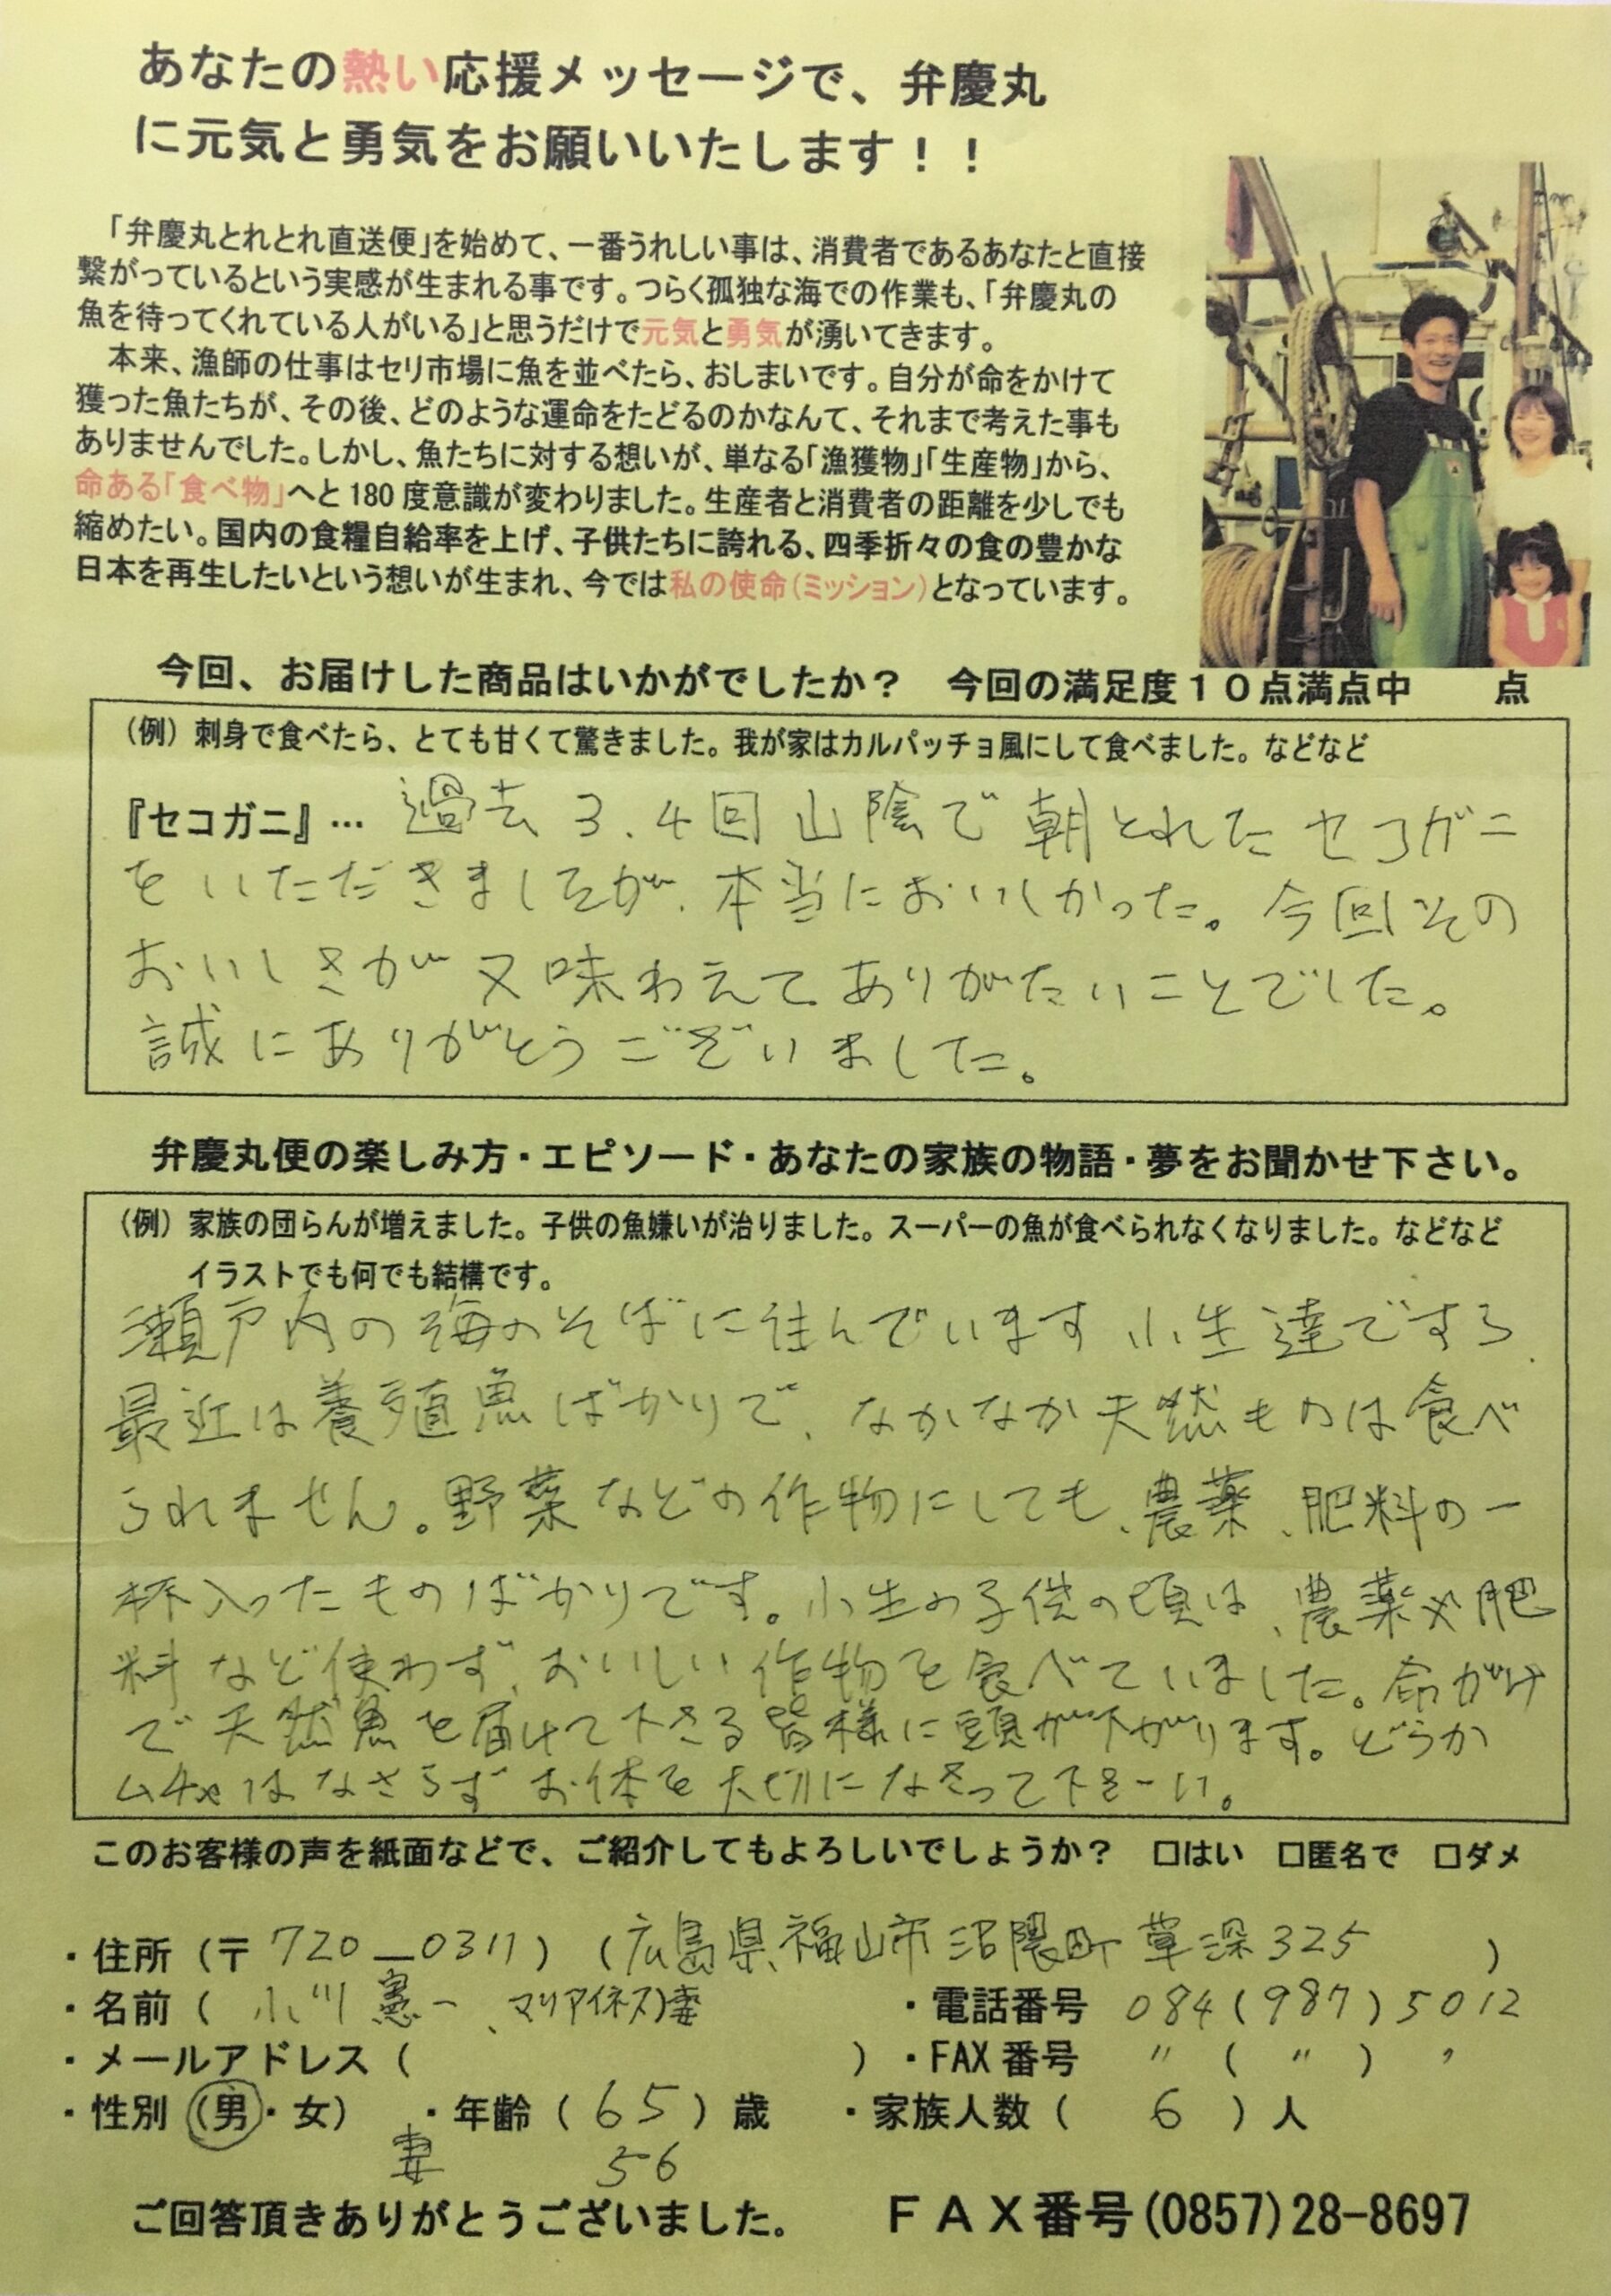 あなたの熱い応援メッセージで、弁慶丸
に元気と勇気をお願いいたします！！
「弁慶丸とれとれ直送便」を始めて、一番うれしい事は、消費者であるあなたと直接
繋がっているという実感が生まれる事です。つらく孤独な海での作業も、「弁慶丸の
魚を待ってくれている人がいる」と思うだけで元気と勇気が湧いてきます。
本来、漁師の仕事はセリ市場に魚を並べたら、おしまいです。自分が命をかけて
獲った魚たちが、その後、どのような運命をたどるのかなんて、それまで考えた事も
ありませんでした。しかし、魚たちに対する想いが、単なる「漁獲物」「生産物」から、
命ある「食べ物」へと180度意識が変わりました。生産者と消費者の距離を少しでも
縮めたい。国内の食糧自給率を上げ、子供たちに誇れる、四季折々の食の豊かな
日本を再生したいという想いが生まれ、今では私の使命（ミッション）となっています。
今回、お届けした商品はいかがでしたか？　今回の満足度１０点満点中　　点
（例）刺身で食べたら、とても甘くて驚きました。我が家はカルパッチョ風にして食べました。などなど
『セコガニ』… 過去3.4回山陰で朝とれたセコガニ
をいただきましたが、本当においしかった。今回その
おいしさが又味わえてありがたいことでした。
誠にありがとうございました。
弁慶丸便の楽しみ方・エピソード・あなたの家族の物語・夢をお聞かせ下さい。
（例）家族の団らんが増えました。子供の魚嫌いが治りました。スーパーの魚が食べられなくなりました。などなど
イラストでも何でも結構です。
瀬戸内の海のそばに住んでいます小生達ですら、
最近は養殖魚ばかりで、なかなか天然ものは食べ
られません。野菜などの作物にしても、農薬、肥料の一
杯入ったものばかりです。小生の子供の頃は、農薬や肥
料など使わず、おいしい作物を食べていました。命がけ
で天然魚を届けて下さる皆様に頭が下がります。どうか
ムリはなさらずお体を大切になさって下さーい。
このお客様の声を紙面などで、ご紹介してもよろしいでしょうか？　□はい　□匿名で　□ダメ
・住所（〒720-0311）（広島県福山市沼隈町草深325　）
・名前（ 小川憲一、マリアイネス）妻　・電話番号 084(987)5012
・メールアドレス（　　　）・FAX番号 〃（〃）〃
・性別（男・女）　・年齢（65）歳　・家族人数（ 6 ）人
妻　56
ご回答頂きありがとうございました。　ＦＡＸ番号(0857)28-8697